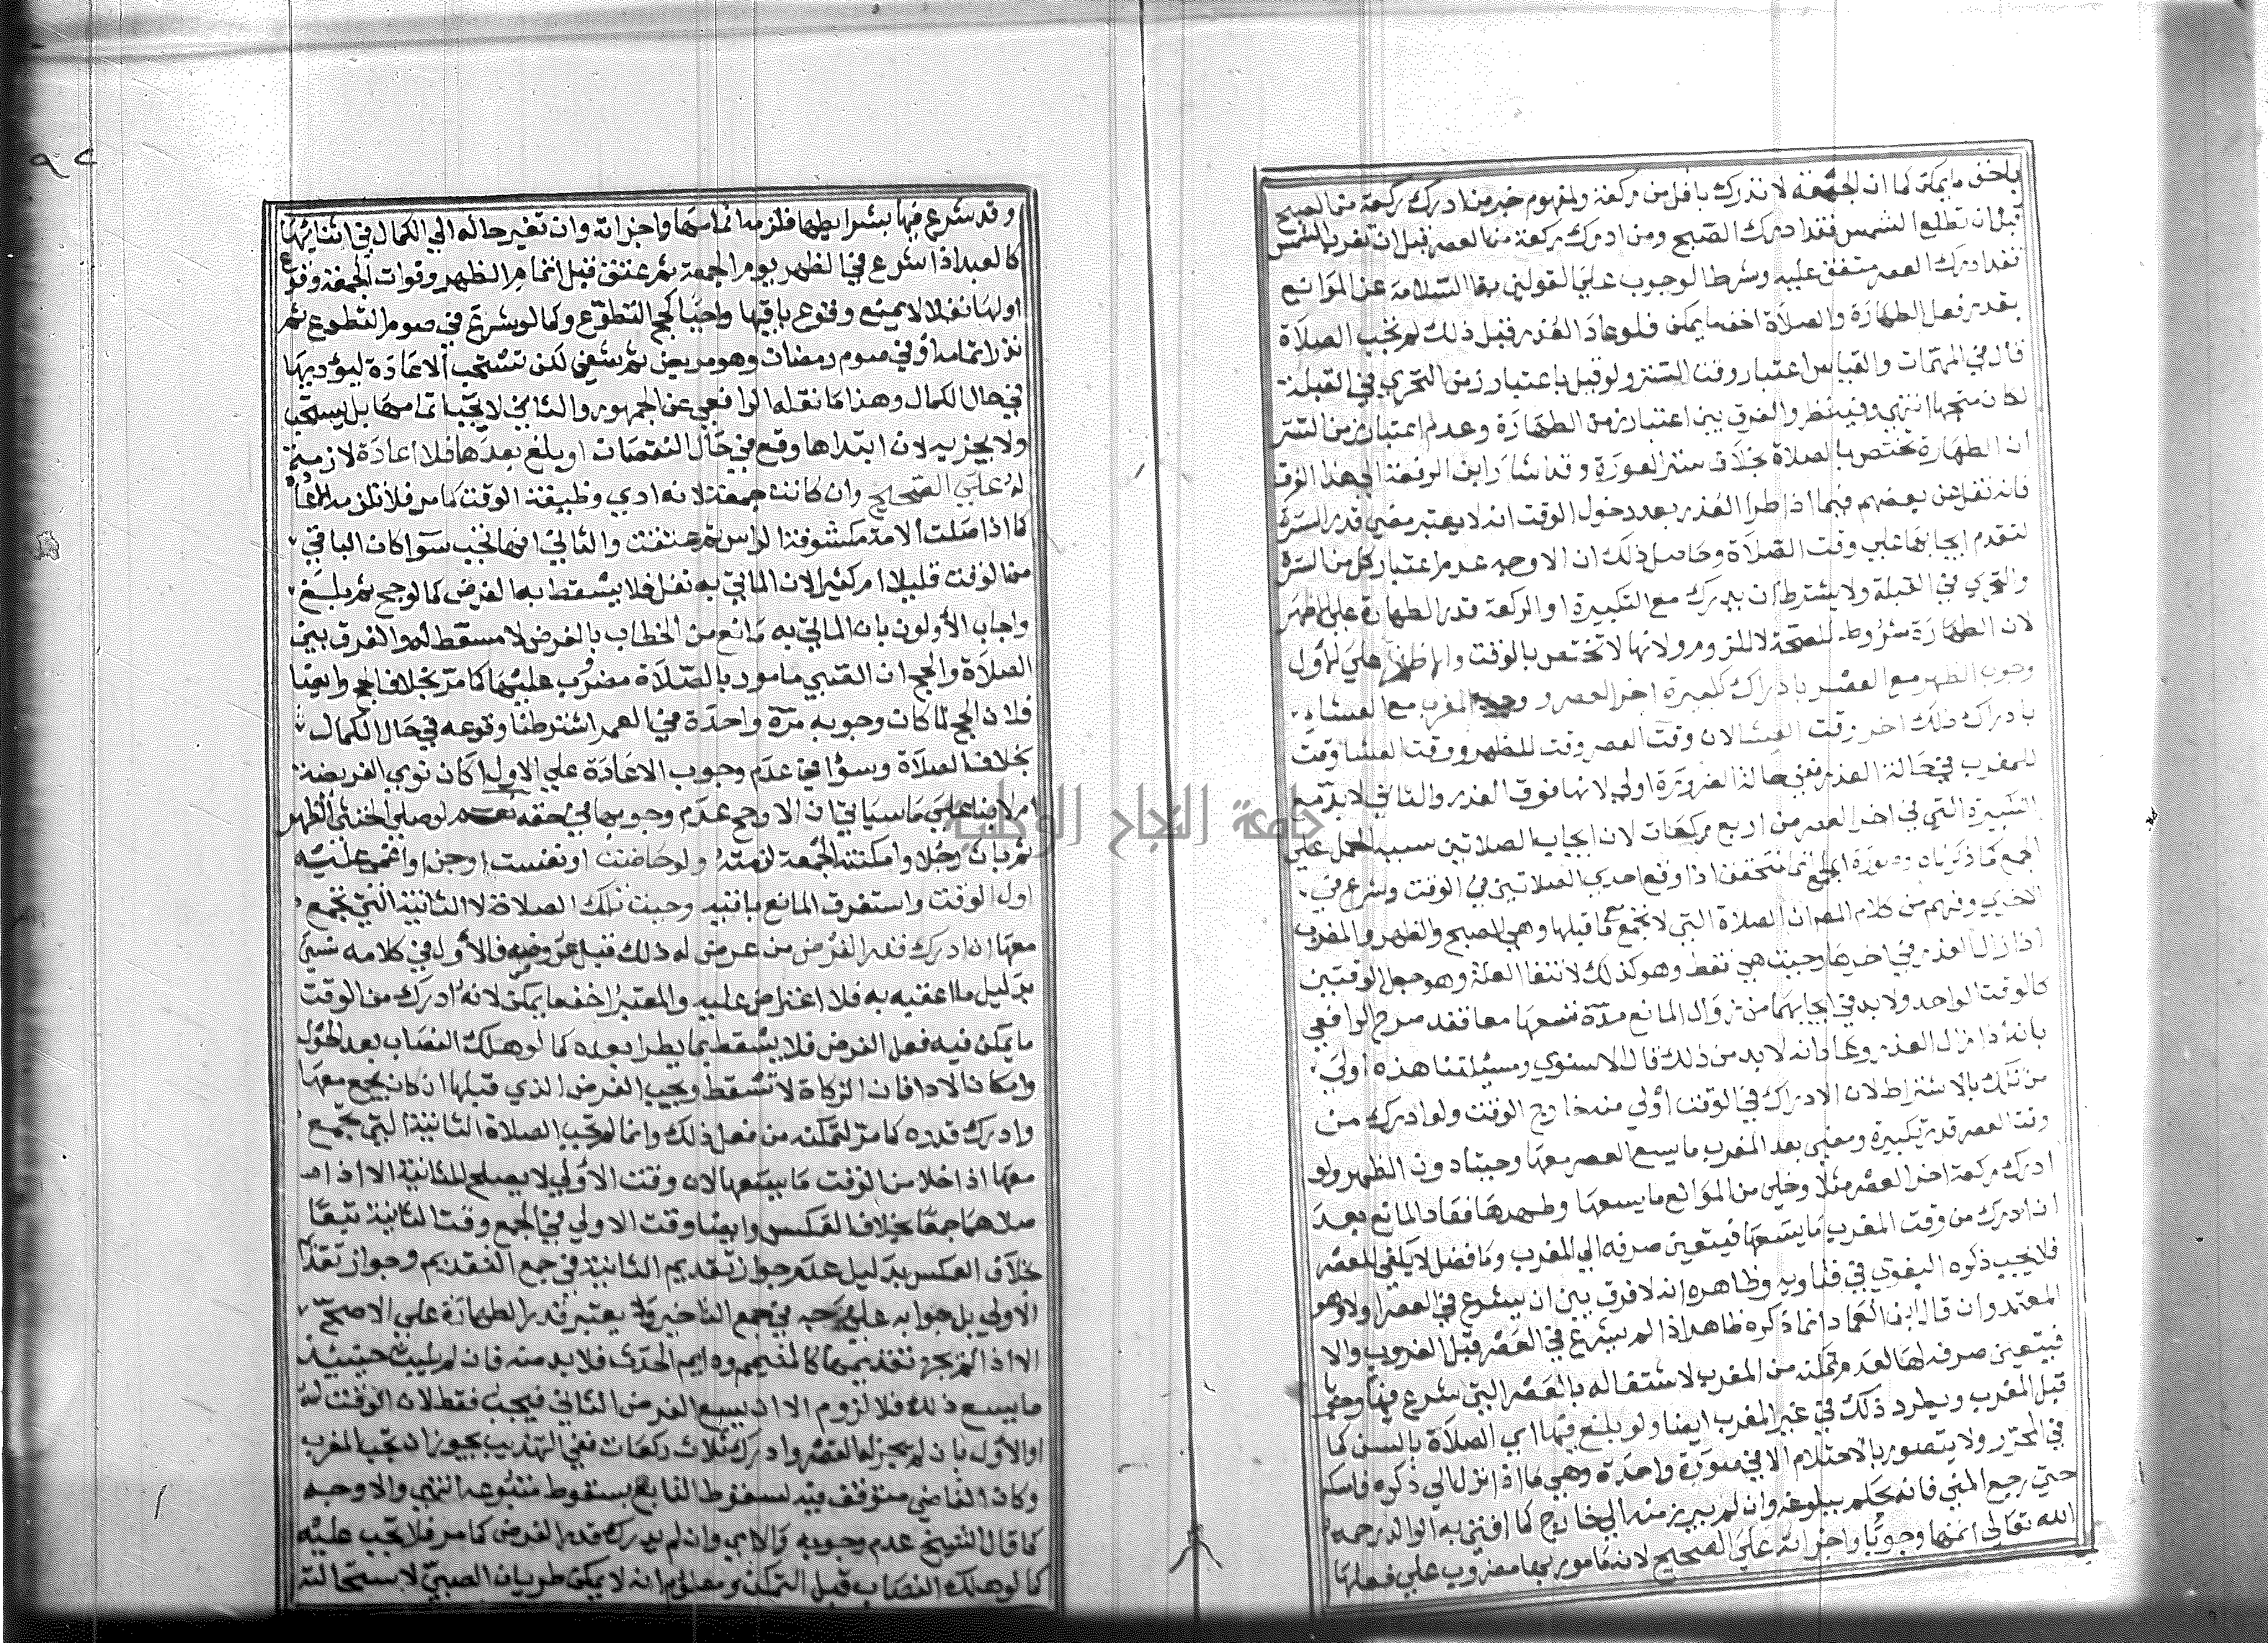 باخف ما يمكن كما ان الجمعة لا تدرك باقل من ركعة ولمفهوم خبر من ادرك ركعة من الصبح
قبل ان تطلع الشمس فقد ادرك الصبح ومن ادرك ركعة من العصر قبل ان تغرب الشمس
فقد ادرك العصر متفق عليه وشرط الوجوب علي القولين بقا السلامة عن الموانع
بقدر فعل الطهارة والصلاة اخف ما يمكن فلو عاد العذر قبل ذلك لم تجب الصلاة
قال في المهمات والقياس اعتبار وقت الستر ولو قيل باعتبار زمن التحري في القبلة
لكان متجها انتهي وفيه نظر والفرق بين اعتبار زمن الطهارة وعدم اعتبار زمن الستر
ان الطهارة تختص بالصلاة بخلاف ستر العورة وقد اشار ابن الرفعة الي هذا الفرق
فانه نقل عن بعضهم فيما اذا طرا العذر بعد دخول الوقت انه لا يعتبر مضي قدر السترة
لتقدم ايجابها علي وقت الصلاة وحاصل ذلك ان الاوجه عدم اعتبار كل من الستر
والتحري في القبلة ولا يشترط ان يدرك مع التكبيرة او الركعة قدر الطهارة علي الاظهر
لان الطهارة شروط للصحة لا للزوم ولانها لا تختص بالوقت والاظهر علي الاول
وجوب الظهر مع العصر بادراك تكبيرة اخر العصر و وجوب المغرب مع العشاء
بادراك ذلك اخر وقت العشا لان وقت العصر وقت للظهر ووقت العشا وقت
للمغرب في حالة العذر ففي حالة الضرورة اولي لانها فوق العذر والثاني لا بد مع
التكبيرة التي في اخر العصر من اربع ركعات لان ايجاب الصلاتين سببه الحمل علي
الجمع كما ذكرناه وصورة الجمع انما تتحقق اذا وقع احدي الصلاتين في الوقت وشرع في
الاخري وفهم من كلام المص ان الصلاة التي لا تجمع مع ما قبلها وهي الصبح والظهر والمغرب
اذا زال العذر في اخرها وجبت هي فقط وهو كذلك لانتفا العلة وهو جعل الوقتين
كالوقت الواحد ولا بد في ايجابهما من زوال المانع مدة تسعها معا فقد صرح الرافعي
بانه اذا زال العذر وعاد انه لا بد من ذلك قال الاسنوي ومسئلتنا هذه اولي
من تلك بالاشتراط لان الادراك في الوقت اولي منه خارج الوقت ولو ادرك من
وقت العصر قدر تكبيرة ومضي بعد المغرب ما يسع العصر معها وجبتا دون الظهر ولو
ادرك ركعة اخر العصر مثلا وخلي من الموانع ما يسعها وطهرها فعاد المانع بعد
ان ادرك من وقت المغرب ما يسعها فيتعين صرفه الي المغرب وما فضل لا يكفي للعصر
فلا يجب ذكره البغوي في فتاويه وظاهره انه لا فرق بين ان يشرع في العصر اولا وهو
المعتمد وان قال ابن العماد انما ذكره ظاهر اذا لم يشرع في العصر قبل الغروب والا
فيتعين صرفه لها لعدم تمكنه من المغرب لاشتغاله بالعصر التي شرع فيها وجوبا
قبل المغرب ويطرد ذلك في غير المغرب ايضا ولو بلغ فيها اي الصلاة بالسن كما
في المحرر ولا يتصور بالاحتلام الا في صورة واحدة وهي ما اذا نزل الي ذكره فامسكه
حتي رجع المني فانه يحكم ببلوغه وان لم يبرز منه الي خارج كما افتي به الوالد رحمه
الله تعالي اتمها وجوبا واجزاته علي الصحيح لانه مامور بها مضروب علي فعلها
٩٢
و قد شرع فيها بشرايطها فلزمه اتمامها واجزاته وان تغير حاله الي الكمال في اثنايها
كالعبد اذا شرع في الظهر يوم الجمعة ثم عتق قبل اتمام الظهر وفوات الجمعة ووقوع
اولها نفلا لا يمنع وقوع باقيها واجبا كحج التطوع وكما لو شرع في صوم التطوع ثم
نذر اتمامه او في صوم رمضان وهو مريض ثم شفي لكن تستحب الاعادة ليؤديها
في حال الكمال وهذا ما نقله الرافعي عن الجمهور والثاني لا يجب اتمامها بل يستحب
ولا يجزيه لان ابتداها وقع في حال النقصان او بلغ بعدها فلا اعادة لازمة
له علي الصحيح وان كانت جمعة لانه ادي وظيفة الوقت كما مر فلا تلزمه الاعادة
كما اذا صلت الامة مكشوفة الراس ثم عتقت والثاني انها تجب سوا كان الباقي
من الوقت قليلا ام كثيرا لان الماتي به نفل فلا يسقط به الفرض كما لو حج ثم بلغ
واجاب الاولون بان الماتي به مانع من الخطاب بالفرض لا مسقط له والفرق بين
الصلاة والحج ان الصبي مامور بالصلاة مضروب عليها كما مر بخلاف الحج وايضا
فلان الحج لما كان وجوبه مرة واحدة في العمر اشترطنا وقوعه في حال الكمال
بخلاف الصلاة وسوا في عدم وجوب الاعادة علي الاول اكان نوي الفريضة
ام لا بنا علي ما سياتي ان الارجح عدم وجوبها في حقه نعم لو صلي الخنثي الظهر
ثم بان رجلا وامكنته الجمعة لزمته ولو حاضت او نفست او جن او اغمي عليه
اول الوقت واستغرق المانع باقيه وجبت تلك الصلاة لا الثانية التي تجمع
معها ان ادرك قدر الفرض من عرض له ذلك قبل عروضه فالاول في كلامه نسبي
بدليل ما اعقبه به فلا اعتراض عليه والمعتبر اخف ما يمكن لانه ادرك من الوقت
ما يمكن فيه فعل الفرض فلا يسقط بما يطرا بعده كما لو هلك النصاب بعد الحول
وامكان الادا فان الزكاة لا تسقط ويجب الفرض الذي قبلها ان كان يجمع معها
وادرك قدره كما مر لتمكنه من فعل ذلك وانما لم تجب الصلاة الثانية التي تجمع
معها اذا خلا من الوقت ما يسعها لان وقت الاولي لا يصلح للثانية الا اذا
صلاهما جمعا بخلاف العكس وايضا وقت الاولي في الجمع وقت الثانية تبعا
بخلاف العكس بدليل عدم جواز تقديم الثانية في جمع التقديم وجواز تقديم
الاولي بل وجوبه علي وجه في جمع التاخير ولا يعتبر قدر الطهارة علي الاصح
الا اذا لم يجز تقديمها كالمتيمم ودايم الحدث فلا بد منه فان لم يبق حينئذ
ما يسع ذلك فلا لزوم الا ان يسع الفرض الثاني فيجب فقط لان الوقت له
او الاول بان لم يجز له القصر وادرك ثلاث ركعات ففي التهذيب يجوز ان تجب المغرب
وكان القاضي متوقف فيه لسقوط التابع بسقوط متبوعه انتهي والاوجه
كما قال الشيخ عدم وجوبه والا اي وان لم يدرك قدر الفرض كما مر فلا تجب عليه
كما لو هلك النصاب قبل التمكن ومعلوم انه لا يمكن طريان الصبي لاستحالته
جامعة النجاح الوطنية